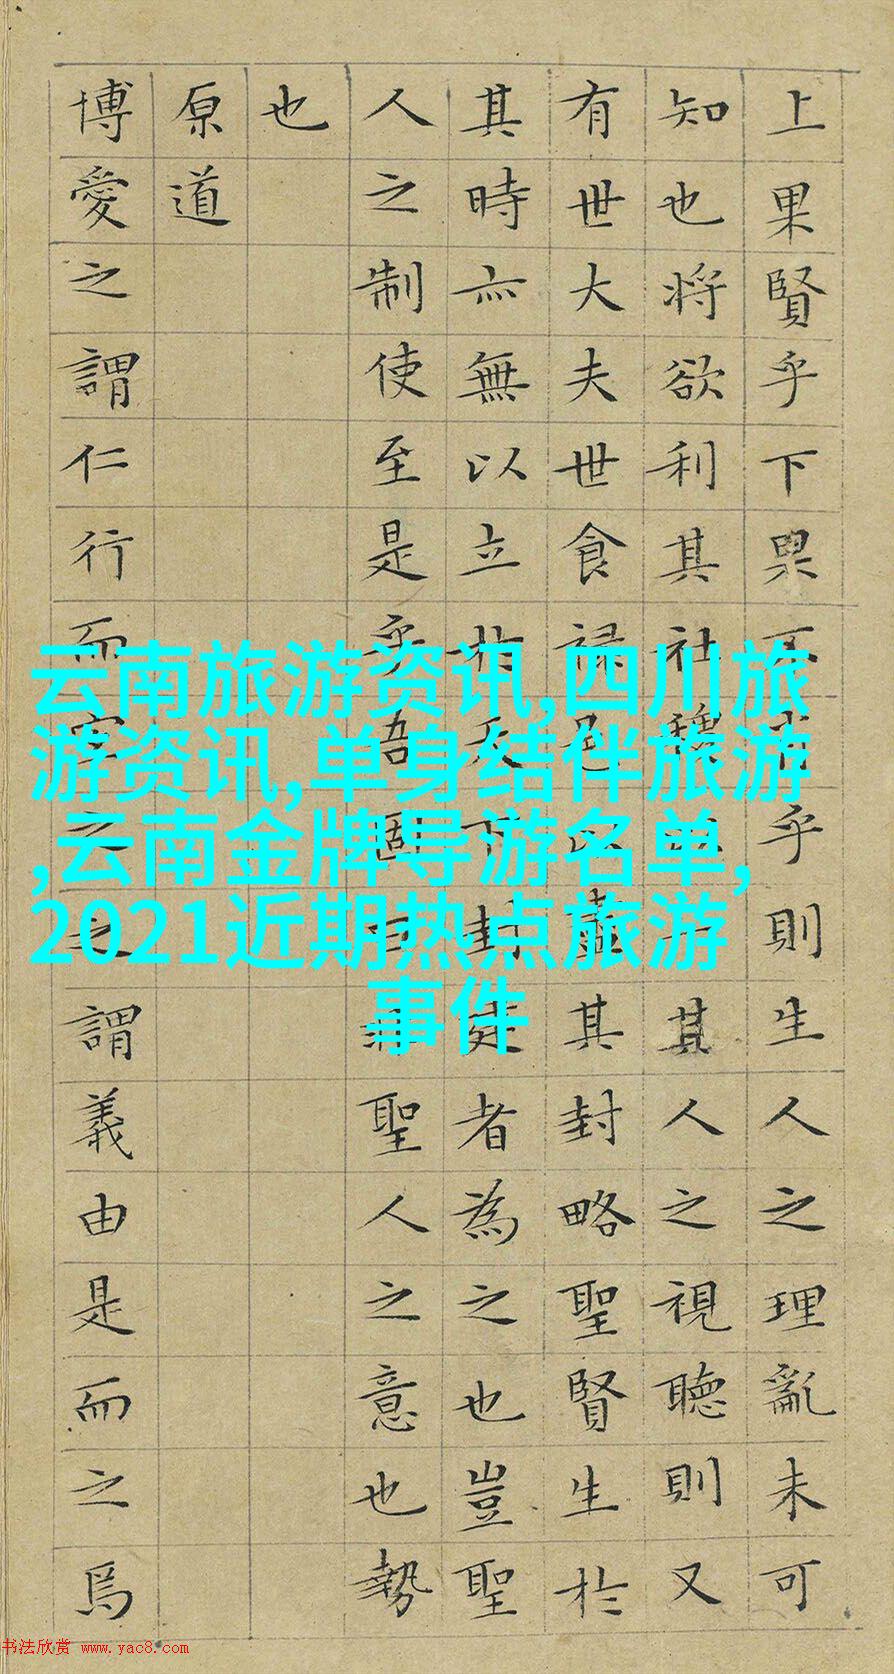 上果賢乎下果不肖乎則生人之理亂未可
知也將欲利其社稷以一其人之視聽則又
有世大夫世食祿邑以盡其封略聖賢生於
其時亦無以立於天下封建者為之也豈聖
人之制使至是乎吾固曰非聖人之意也勢
也
原道
博愛之謂仁行而宜之之謂義由是而之焉
云南旅游资讯,四川旅
游资讯,单身结伴旅游
,云南金牌导游名单,
2021近期热点旅游
事件
书法欣赏 www.yac8.com